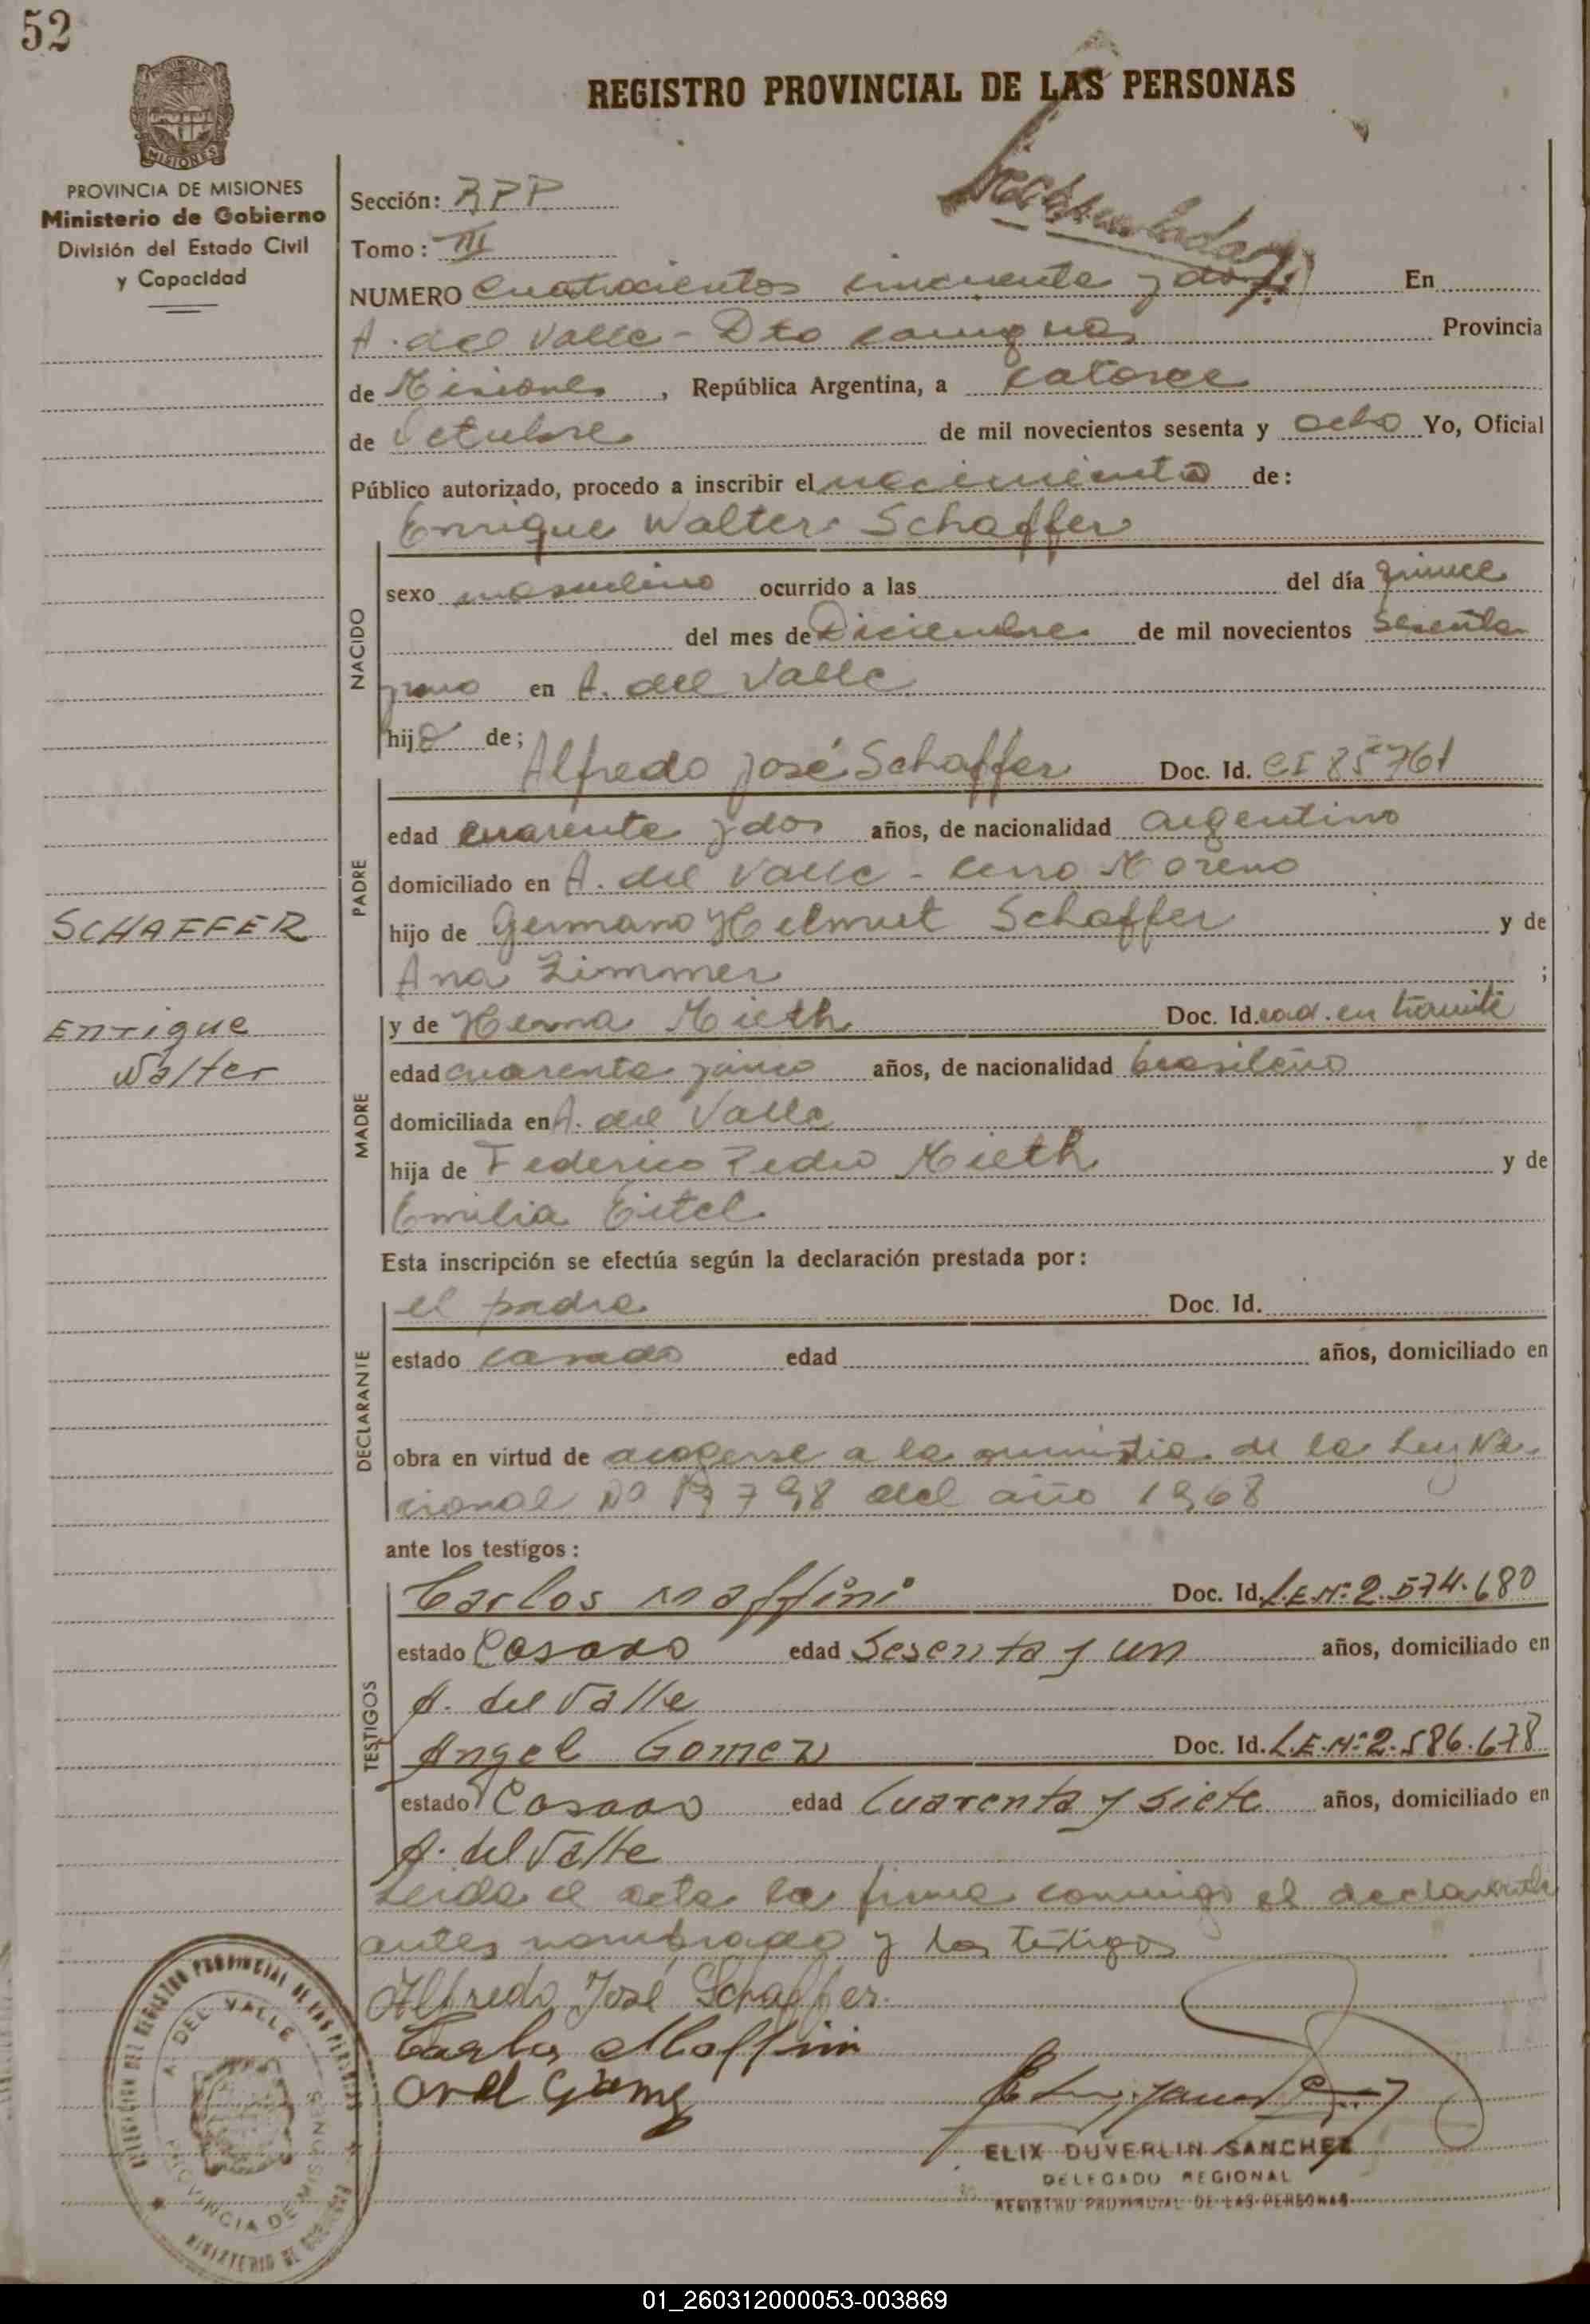 52
REGISTRO PROVINCIAL DE LAS PERSONAS
MISIONES
PROVINCIA DE MISIONES
Ministerio de Gobierno
División del Estado Civil
y Capacidad
Sección: RPP
Tomo: III
NUMERO cuatrocientos cincuenta y dos En
A. del Valle - Dto Cainguas Provincia
de Misiones, República Argentina, a catorce
de Octubre de mil novecientos sesenta y ocho Yo, Oficial
Público autorizado, procedo a inscribir el nacimiento de:
Enrique Walter Schaffer
NACIDO
sexo masculino ocurrido a las del día quince
del mes de Diciembre de mil novecientos sesenta
y uno en A. del Valle
hijo de;
Alfredo José Schaffer Doc. Id. CI 85761
PADRE
edad cuarenta y dos años, de nacionalidad argentino
domiciliado en A. del Valle - Cerro Moreno
hijo de Germano Helmut Schaffer y de
Ana Zimmer ;
SCHAFFER
Enrique
Walter
MADRE
y de Herna Mieth Doc. Id. cad. en trámite
edad cuarenta y cinco años, de nacionalidad brasileño
domiciliada en A. del Valle
hija de Federico Pedro Mieth y de
Emilia Eitel
Esta inscripción se efectúa según la declaración prestada por:
DECLARANTE
el padre Doc. Id.
estado casado edad años, domiciliado en
obra en virtud de acogerse a la amnistia de la Ley Na-
cional Nº 17798 del año 1968
ante los testigos:
TESTIGOS
Carlos Maffini Doc. Id. L.E.Nº 2.574.680
estado Casado edad Sesenta y un años, domiciliado en
A. del Valle
Angel Gomez Doc. Id. L.E.Nº 2.586.678
estado Casado edad Cuarenta y siete años, domiciliado en
A. del Valle
Leida el acta la firma conmigo el declarante
antes nombrado y los testigos
Alfredo José Schaffer
Carlos Maffini
ELIX DUVERLIN SANCHEZ
DELEGADO REGIONAL
REGISTRO PROVINCIAL DE LAS PERSONAS
DELEGACION DEL REGISTRO PROVINCIAL DE LAS PERSONAS
A. DEL VALLE
PROVINCIA DE MISIONES
MINISTERIO DE GOBIERNO
01_260312000053-003869